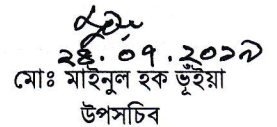 ২৪.০৭.২০১৯
মোঃ মাইনুল হক ভূঁইয়া
উপসচিব